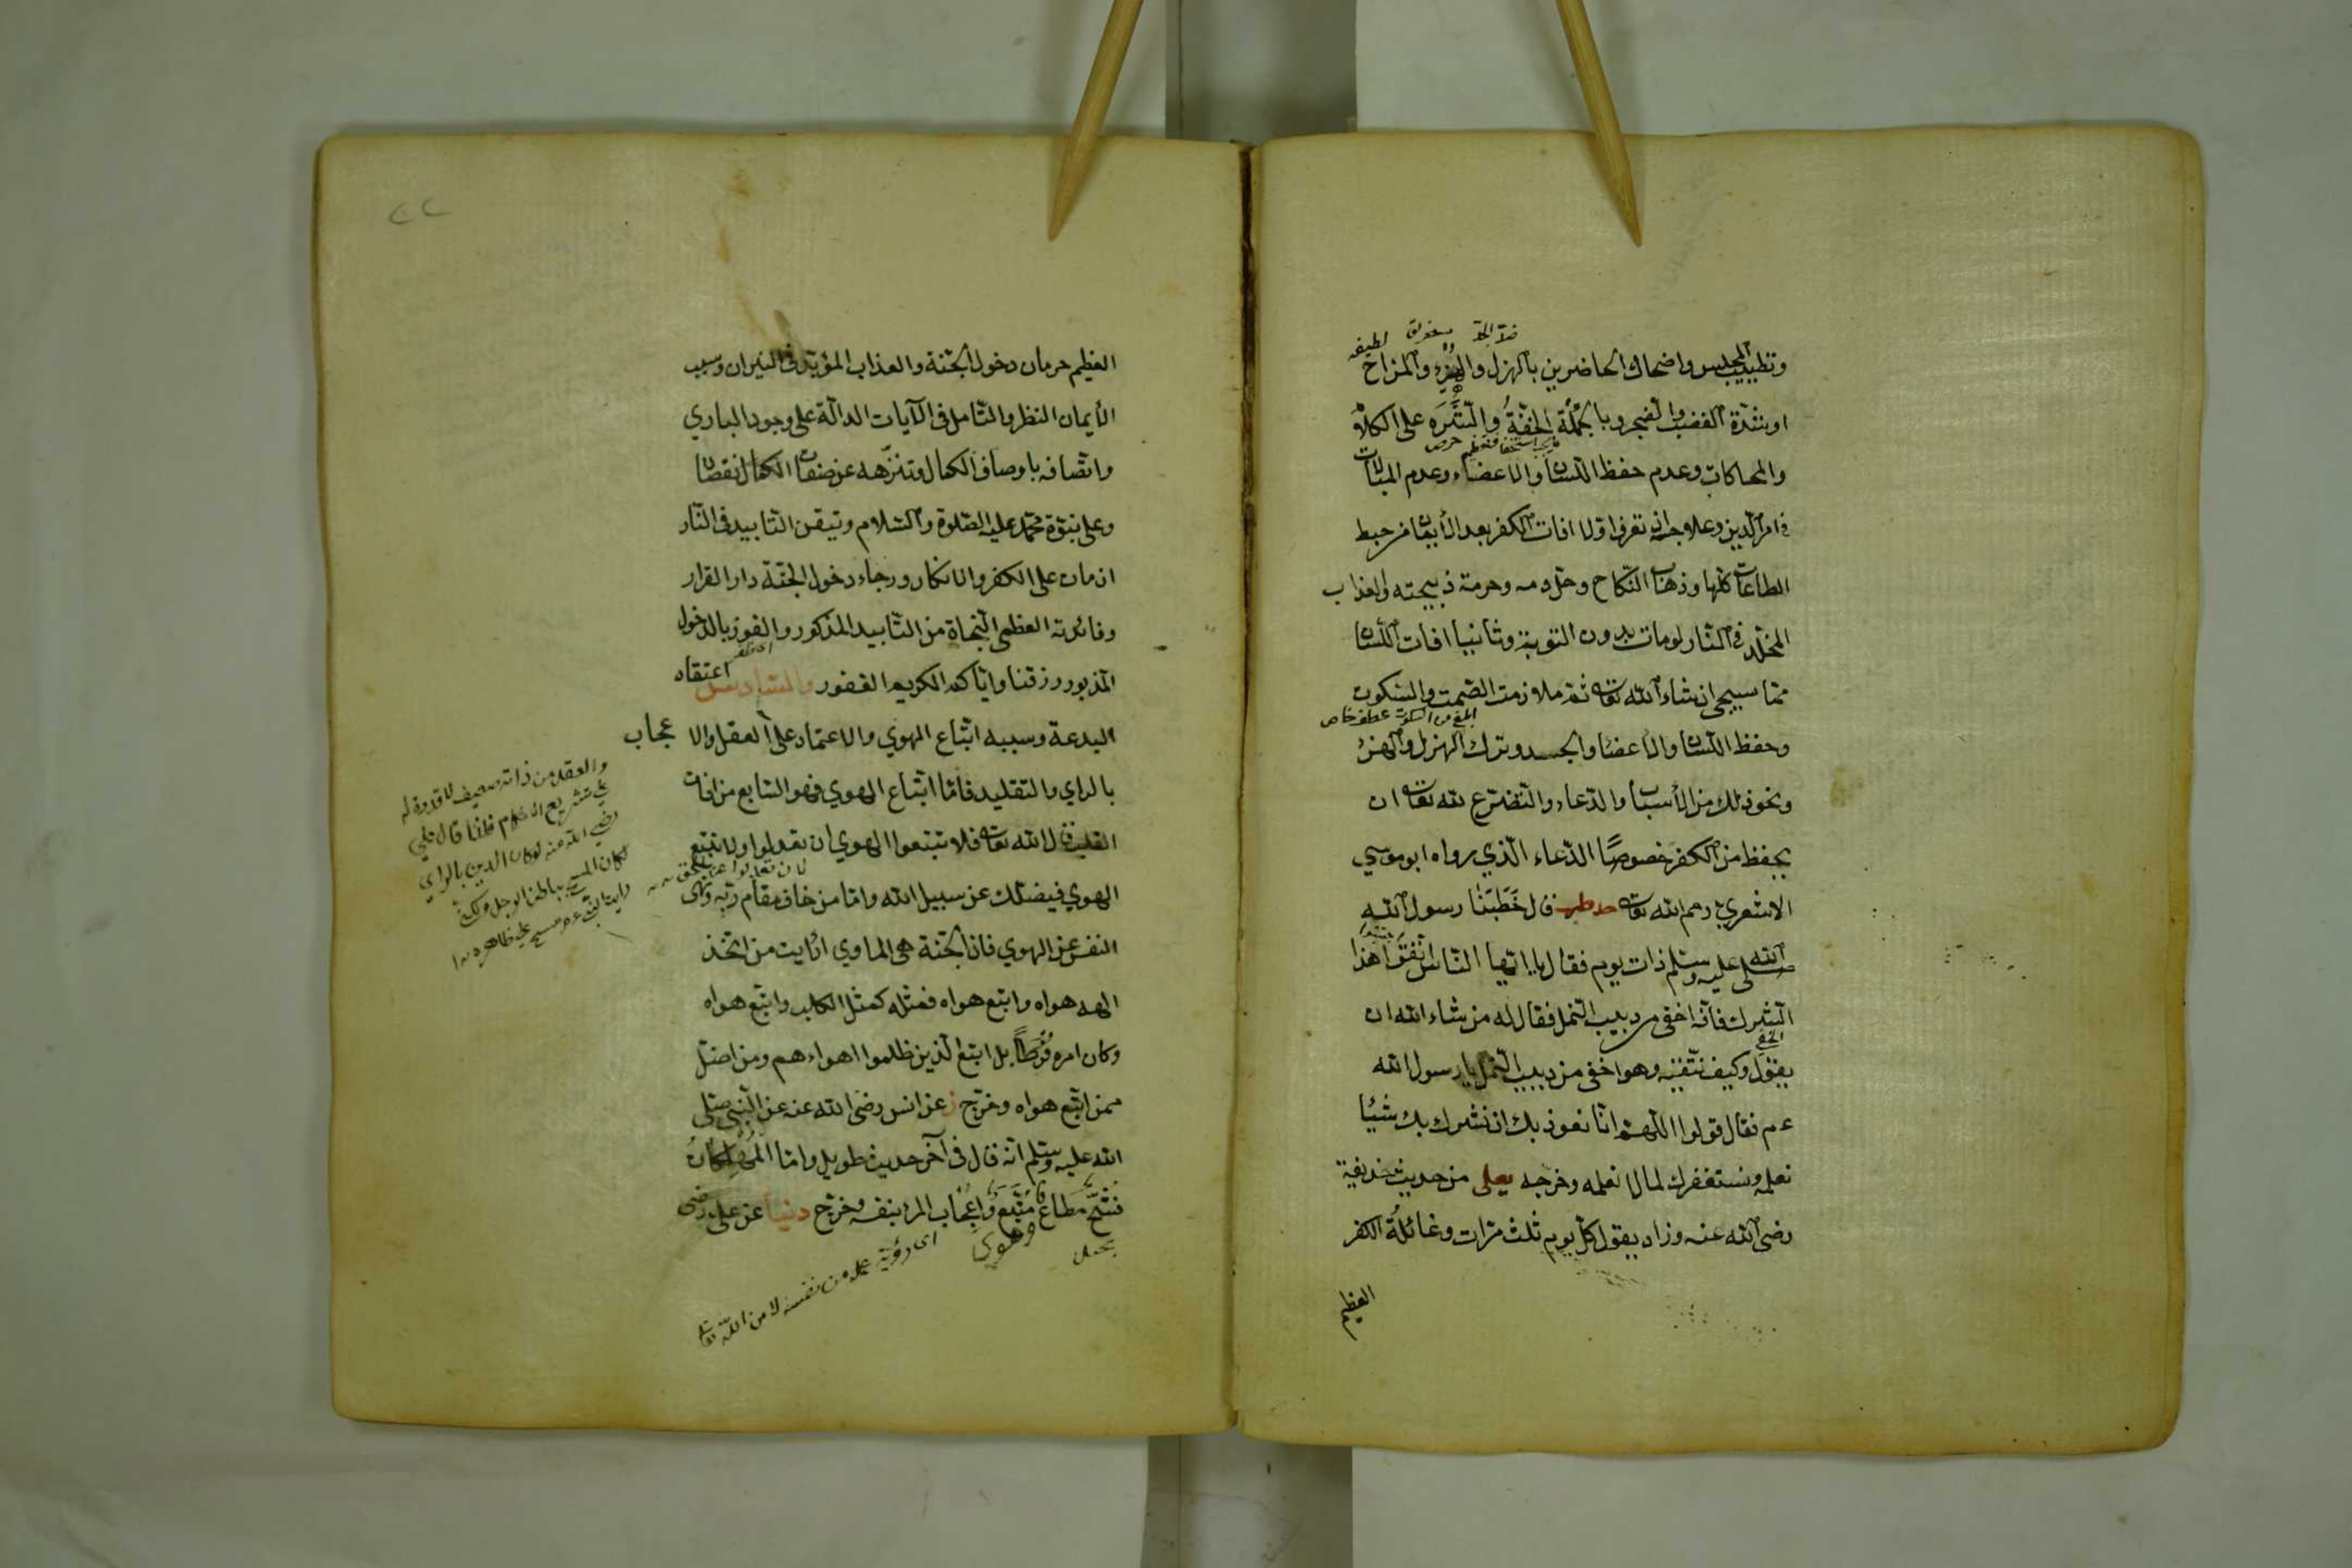 ضد الجد
لطيفه
وتطييب المجلس واضحاك الحاضرين بالهزل والهزء والمزاح
او شدة الغضب والضجر وبالجملة الخفة والشره على الكلام
والمحاكات وعدم حفظ اللسان والاعضاء وعدم المبالات
في امر الدين وعلاجه ان تعرف اولا افات الكفر بعد الأيمان من حبط
الطاعات كلها وذهاب النكاح وحل دمه وحرمة ذبيحته والعذاب
المخلد في النار لو مات بدون التوبة وثانيا افات اللسان
مما سيجئ ان شاء الله تعالى ثم ملازمة الصمت والسكون
ابلغ من السكوت عطف خاص
وحفظ اللسان والاعضاء والجسد وترك الهزل والهزء
ونحو ذلك من الأسباب والدعاء والتضرع لله تعالى ان
يحفظ من الكفر خصوصًا الدعاء الذي رواه ابو موسي
الاشعري رحم الله تعالى حد طب قال خَطَبَنَا رسول الله
صلى الله عليه وسلم ذات يوم فقال يا ايها الناس اتقوا هذا
الشرك فانه اخفى من دبيب النمل فقال له من شاء الله ان
الخفي
يقول وكيف نتقيه وهو اخفى من دبيب النمل يا رسول الله
عم فقال قولوا اللهم انا نعوذ بك ان نشرك بك شيئا
نعلمه ونستغفرك لما لا نعلمه وخرجه يعلى من حديث حذيفة
رضى الله عنه وزاد يقول كل يوم ثلث مرات وغائلة الكفر
العظيم
٢٢
العظيم حرمان دخول الجنة والعذاب المؤبد في النيران وسبب
الأيمان النظر والتأمل في الآيات الدالة على وجود الباري
واتصافه باوصاف الكمال وتنزهه عن صفات النقصان
وعلى نبوة محمد عليه الصلوة والسلام وتيقن التابيد في النار
ان مات على الكفر والانكار ورجاء دخول الجنة دار القرار
وفائدته العظمى النجاة من التأبيد المذكور والفوز بالدخول
المزبور رزقنا واياكم الكريم الغفور والسادس اعتقاد
البدعة وسببه اتباع الهوي والاعتماد على العقل والاعجاب
بالراي والتقليد فاما اتباع الهوي فهو السابع من افات
القلب قال الله تعالى فلا تتبعوا الهوي ان تعدلوا ولا تتبع
لان تعدلوا عن الحق
الهوي فيضلك عن سبيل الله واما من خاف مقام ربه ونهى
النفس عن الهوي فان الجنة هي الماوي ارأيت من اتخذ
الهه هواه واتبع هواه فمثله كمثل الكلب واتبع هواه
وكان امره فُرُطًا بل اتبع الذين ظلموا اهواءهم ومن اضل
ممن اتبع هواه وخرج ز عن انس رضى الله عنه عن النبي صلى
الله عليه وسلم انه قال في آخر حديث طويل واما المُهْلِكَاتُ
فَشُحٌّ مُطَاعٌ مُتَّبَعٌ وَاِعْجَاب المرء بنفسه وخرج دنيا عن على رضى
وهوى
اى رؤية عمله من نفسه لا من الله تعالى
والعقل من ذاته ضعيف لا قدرة له
على تشريع الاحكام فلذا قال علي
رضي الله عنه لو كان الدين بالراي
لكان المسح بباطن الرجل ولكن
رايت النبي عم مسح على ظاهره